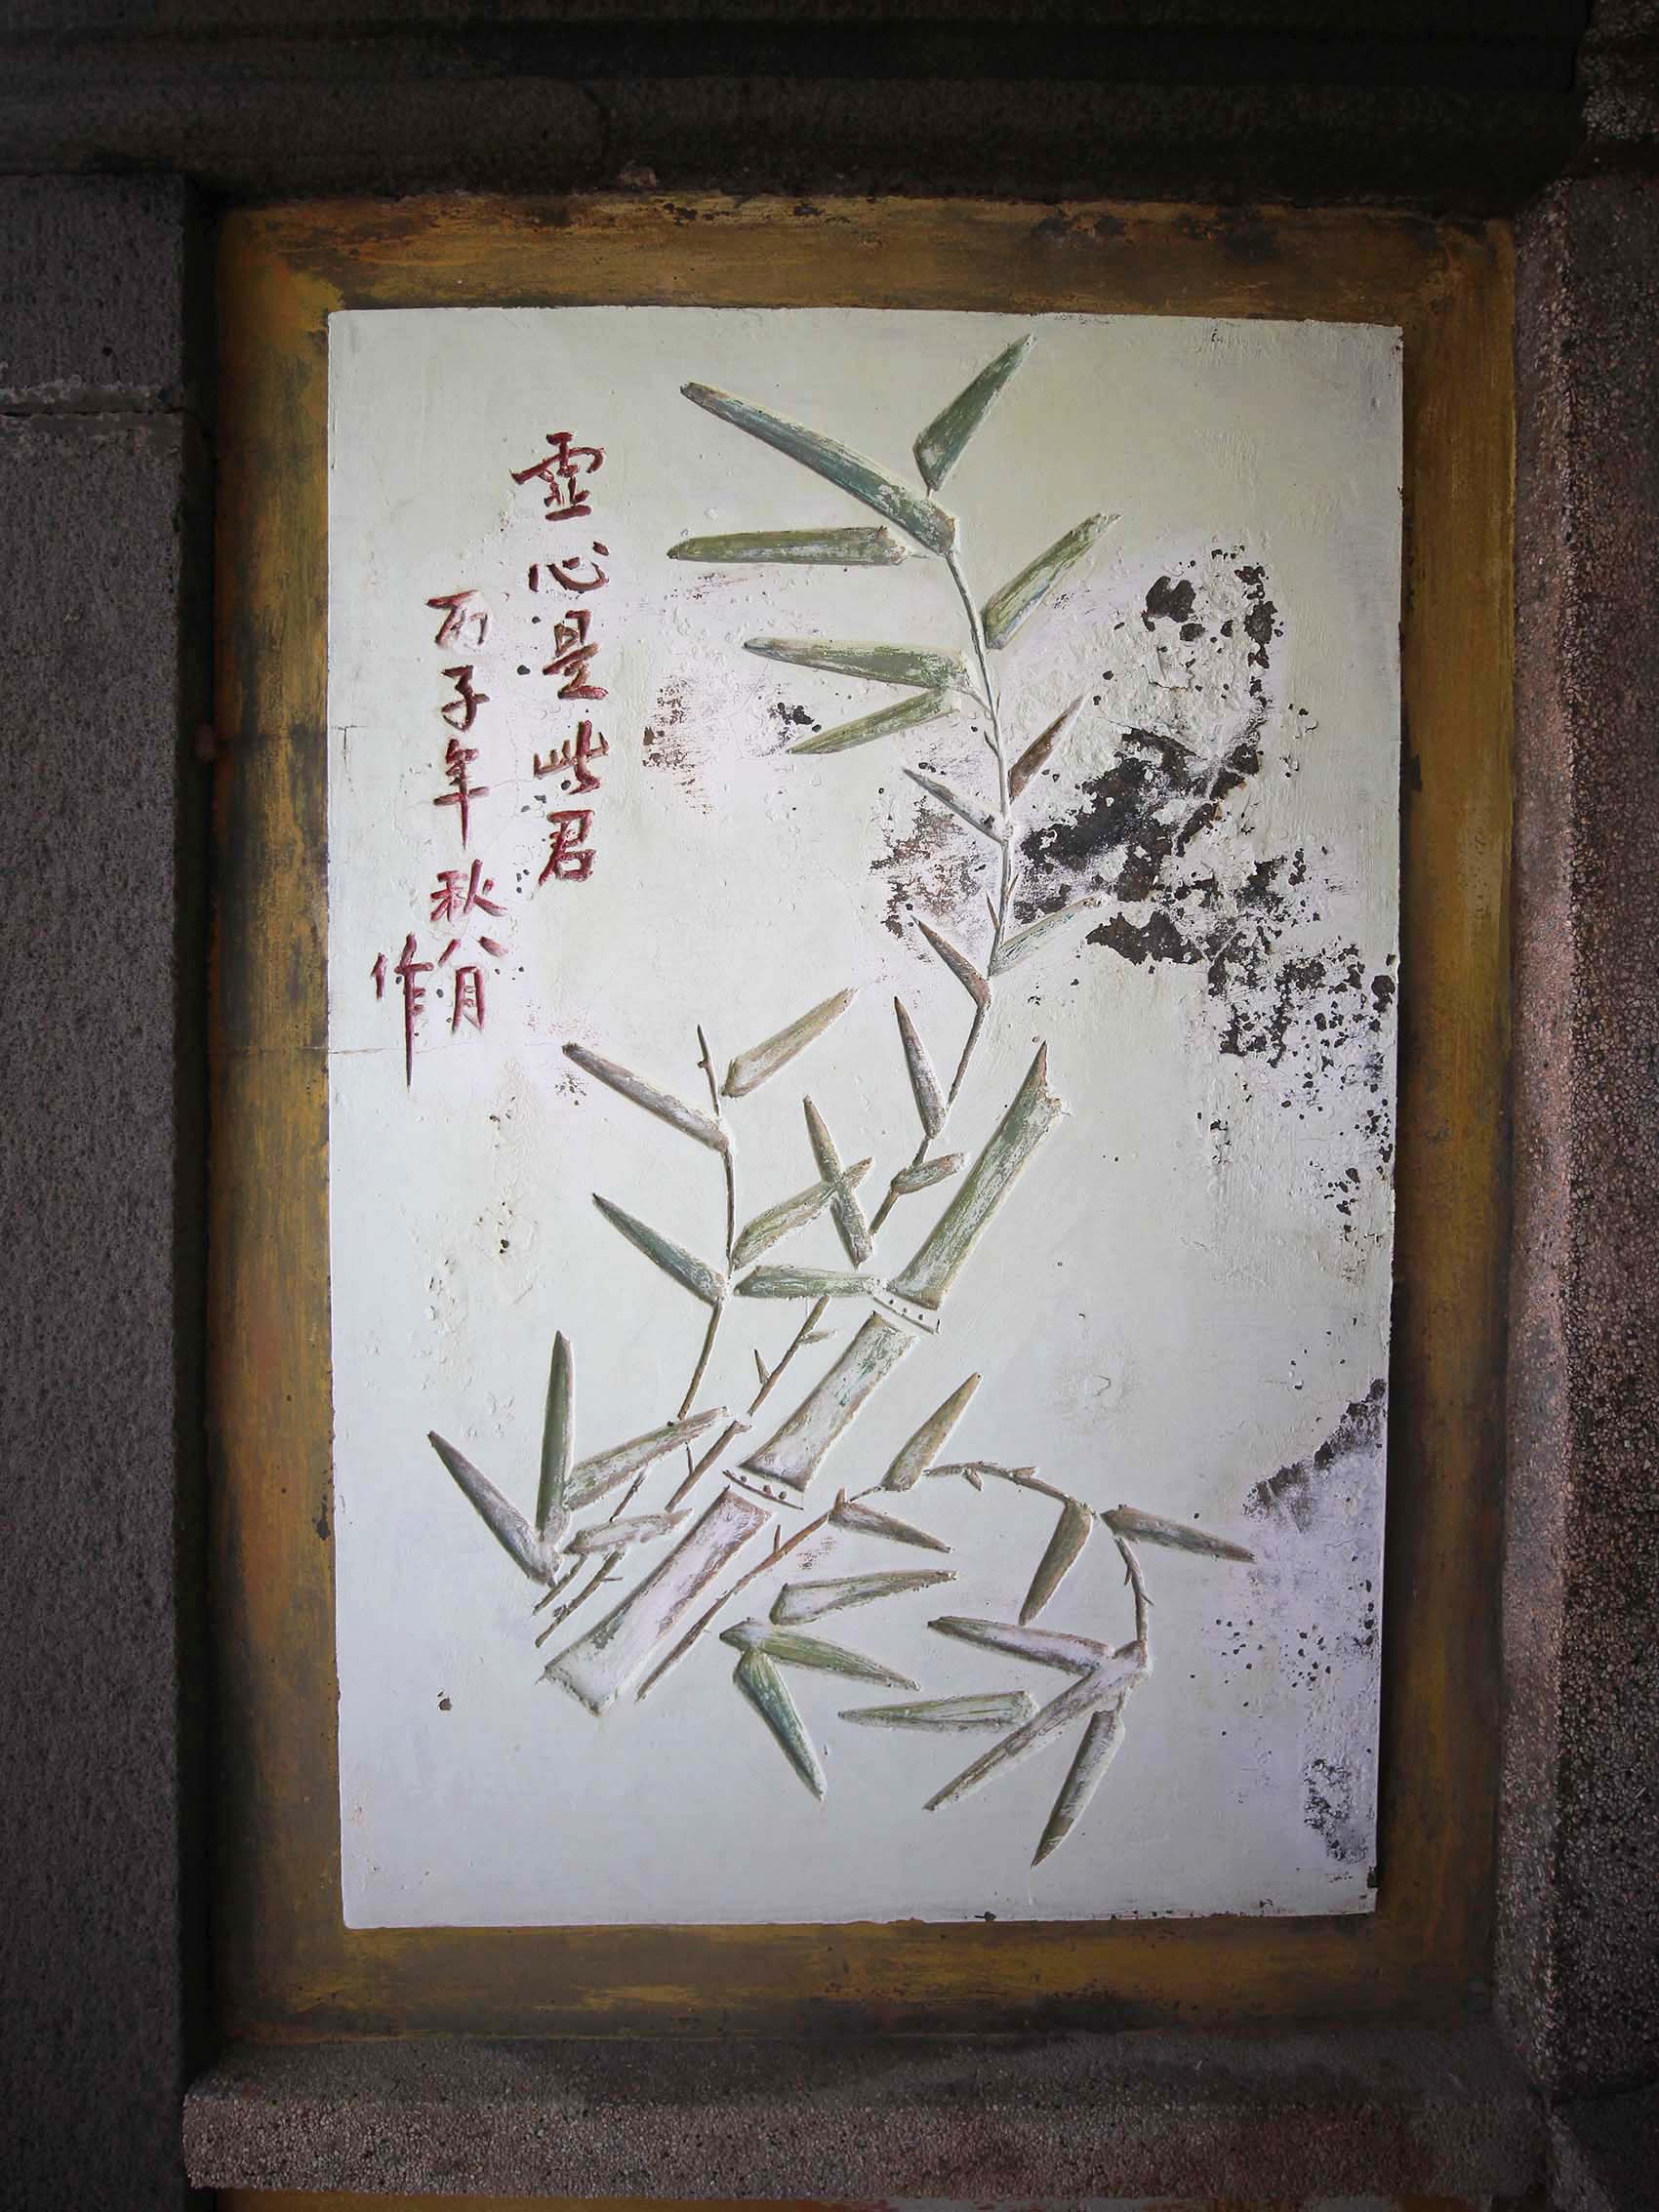 虚心是此君
丙子年秋八月
作